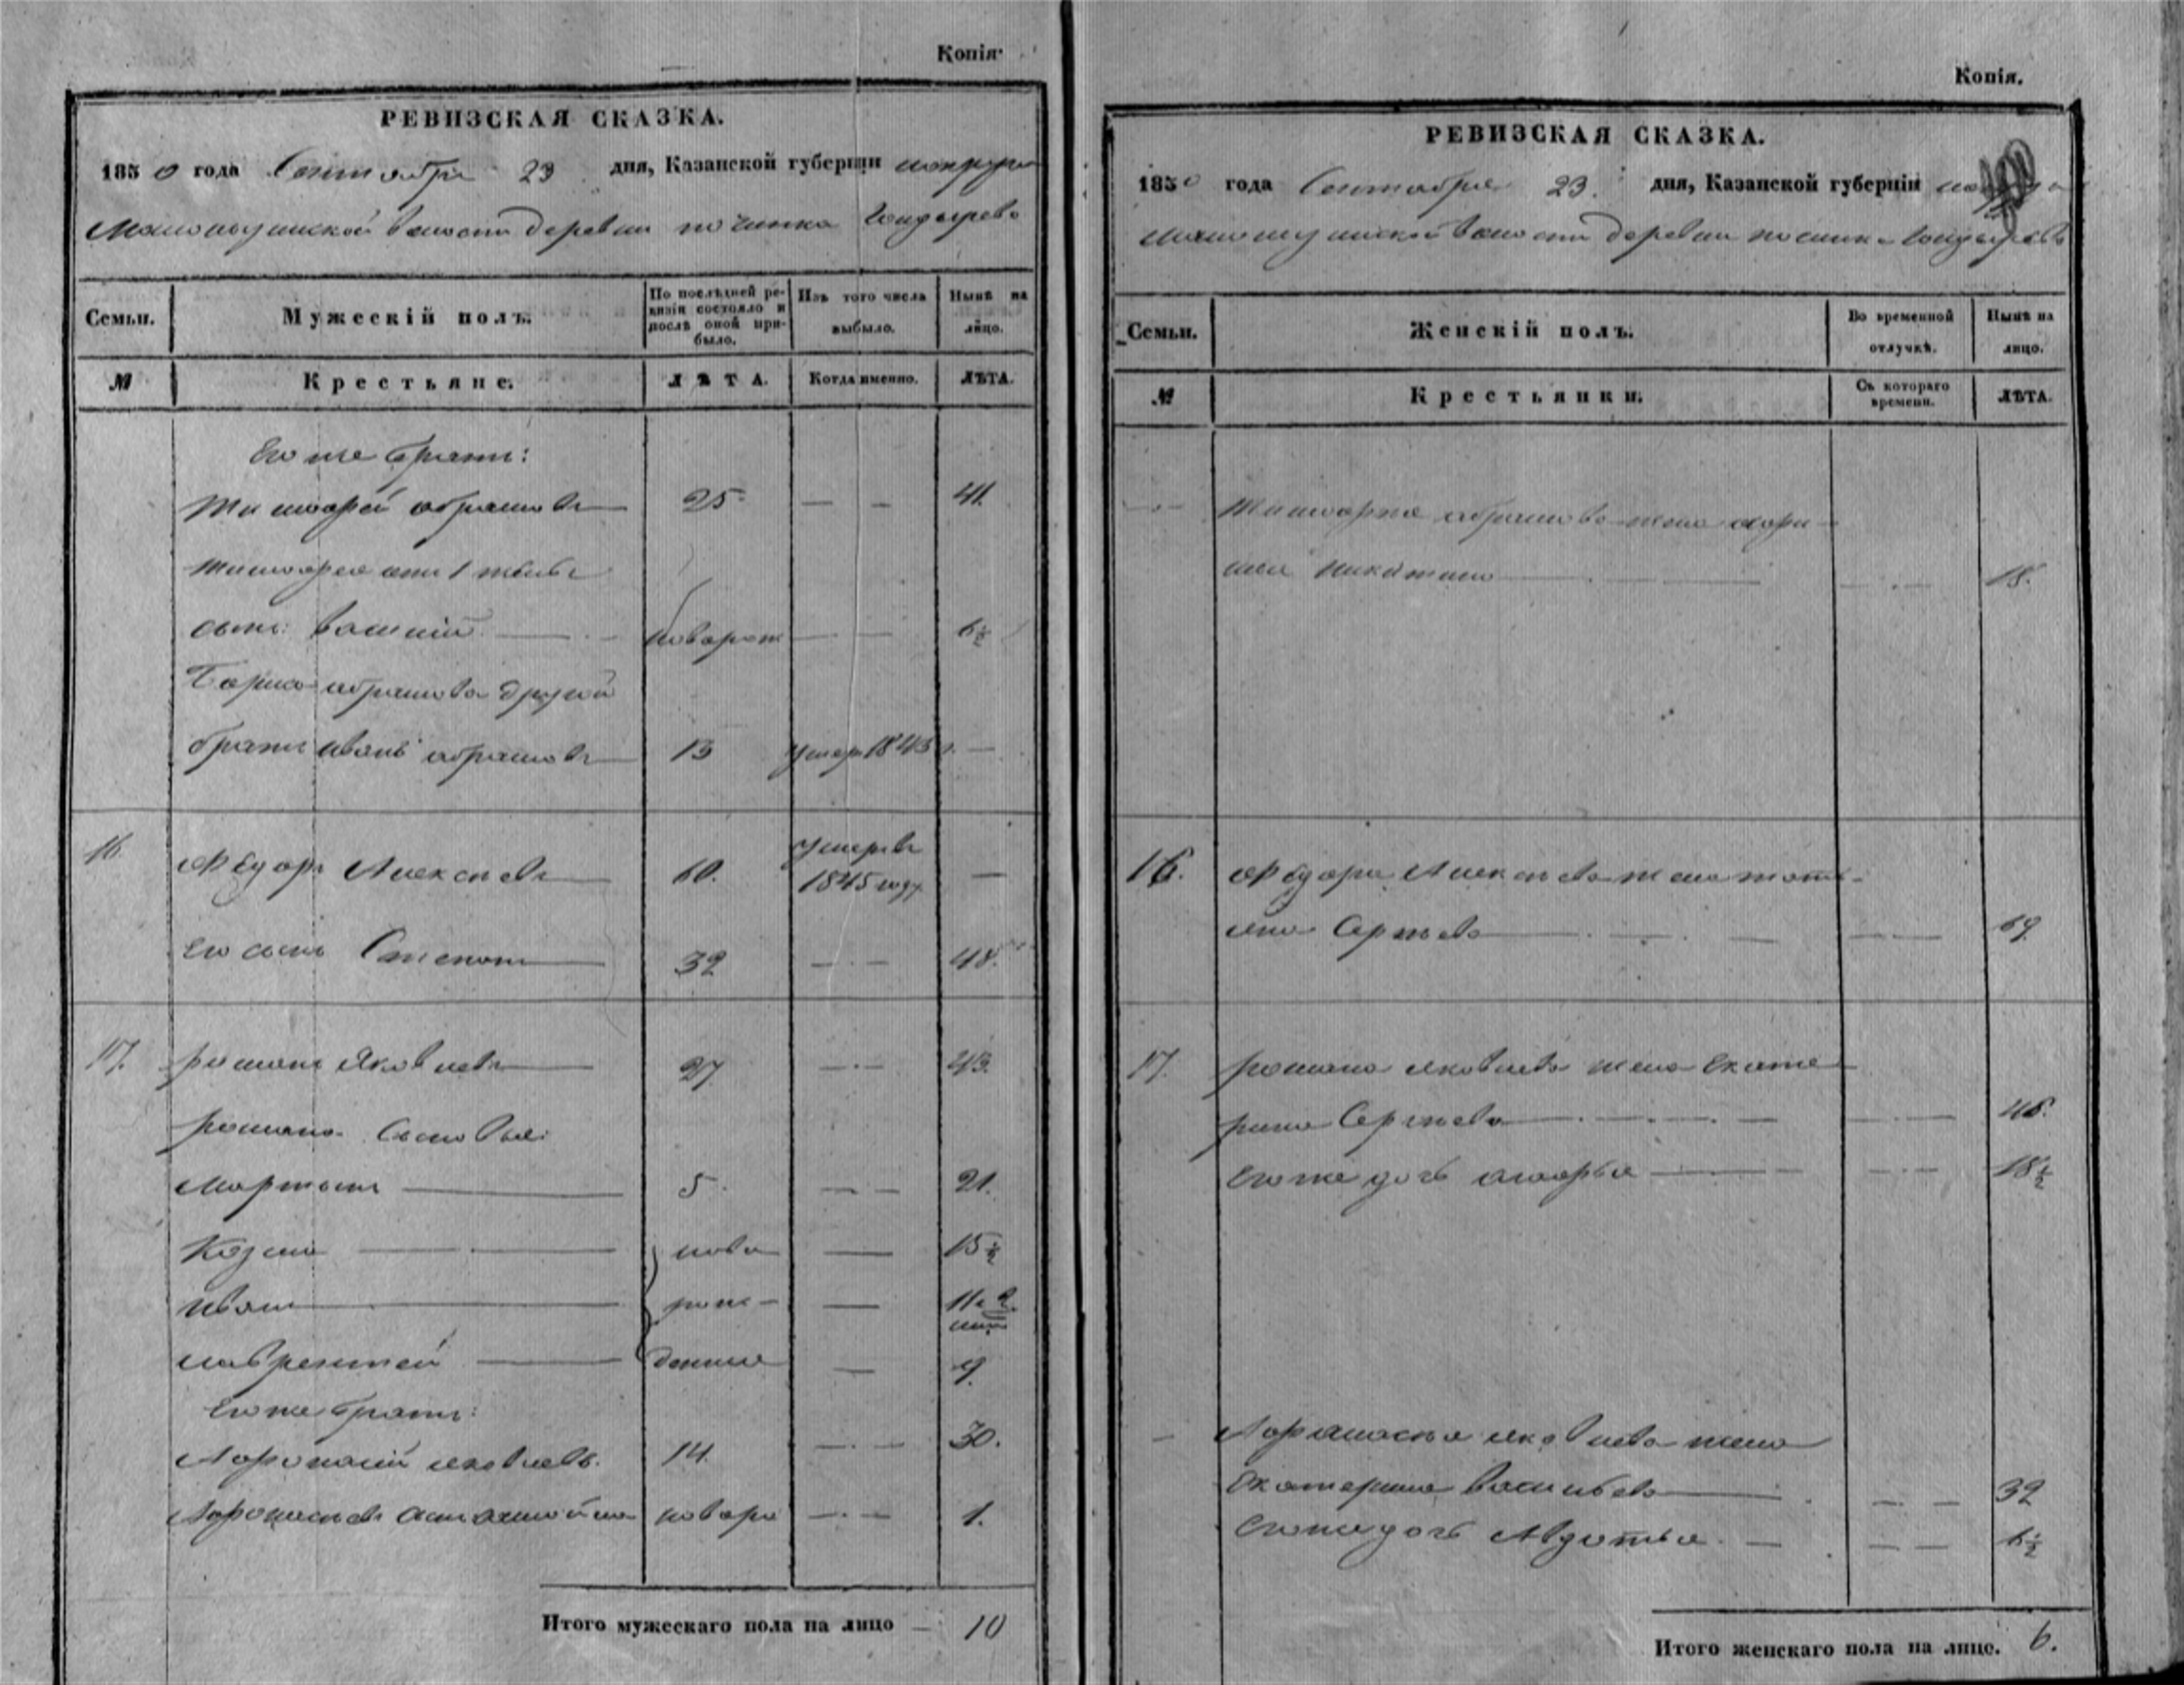 Копія.
РЕВИЗСКАЯ СКАЗКА.
1850 года Сентября 23 дня, Казанской губерніи
волости деревни починка
Семьи.
Мужескій полъ.
По послѣдней ревизіи состояло и послѣ оной прибыло.
Изъ того числа выбыло.
Нынѣ на лицо.
№
Крестьяне.
ЛѢТА.
Когда именно.
ЛѢТА.
Его же братъ:
абрамовъ 25 — — 41.
отъ 1 жены
сынъ Василій — новорож — — 6½
абрамова другой
братъ иванъ абрамовъ 13 умер 1843 г. —
16 Ѳедоръ Алексѣевъ 60. умеръ въ 1845 году —
его сынъ Степанъ 32 — — 48.
17. романъ Яковлевъ 27 — — 43.
романа Сыновья:
мартынъ 5. — — 21.
Козма ново — 15½
иванъ рож — 11 и 2
лаврентей денные — 9.
его же братъ:
Афонасій яковлевъ. 14 — — 30.
Афонасьевъ новоро — — 1.
Итого мужескаго пола на лицо — 10
Копія.
РЕВИЗСКАЯ СКАЗКА.
1850 года Сентября 23. дня, Казанской губерніи
волости деревни починка
Семьи.
Женскій полъ.
Во временной отлучкѣ.
Нынѣ на лицо.
№
Крестьянки.
Съ котораго времени.
ЛѢТА.
абрамова жена
Никитина — — — 18.
16. Ѳедора Алексѣева жена тать-
яна Сергѣева — — — 69.
17. романа яковлева жена Екате
рина Сергѣева — — — 48.
его же дочь марья — — — 18½
Афанасья яковлева жена
Екатерина Васильева — — 32
Его же дочь Авдотья. — — — 6½
Итого женскаго пола на лицо. 6.